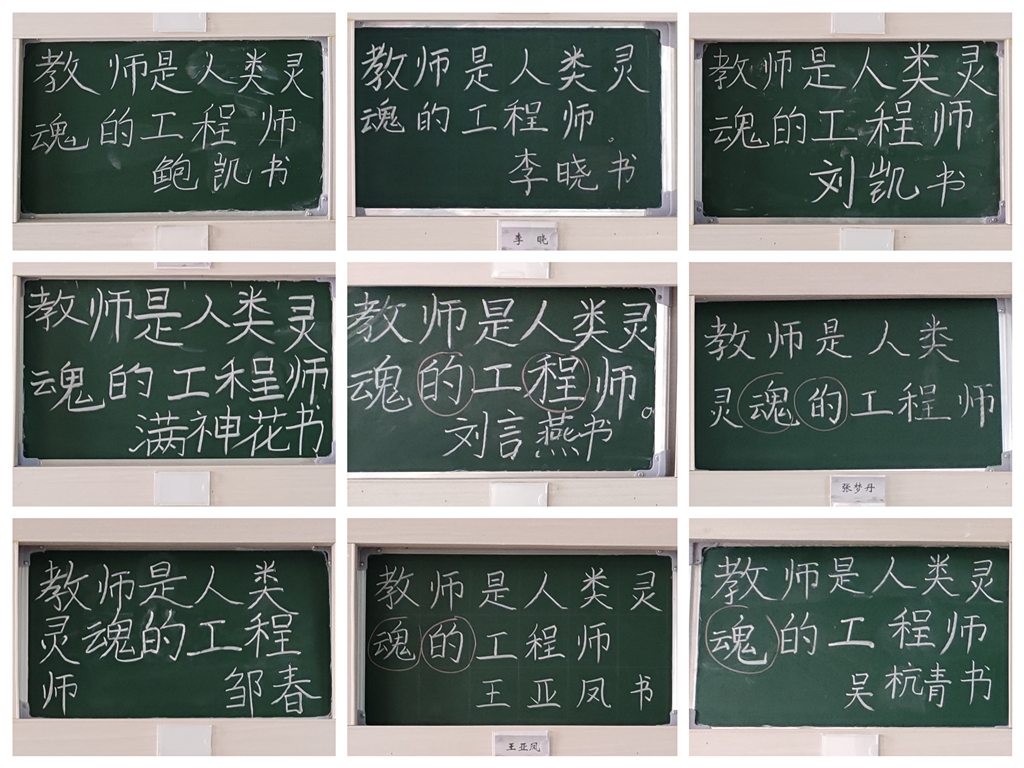 教师是人类灵
魂的工程师
鲍凯书
教师是人类灵
魂的工程师。
李晓书
李晓
教师是人类灵
魂的工程师
刘凯书
教师是人类灵
魂的工程师
满神花书
教师是人类灵
魂的工程师。
刘言燕书
教师是人类
灵魂的工程师
张梦丹
教师是人类
灵魂的工程
师 邹春
教师是人类灵
魂的工程师
王亚凤书
王亚凤
教师是人类灵
魂的工程师
吴杭青书